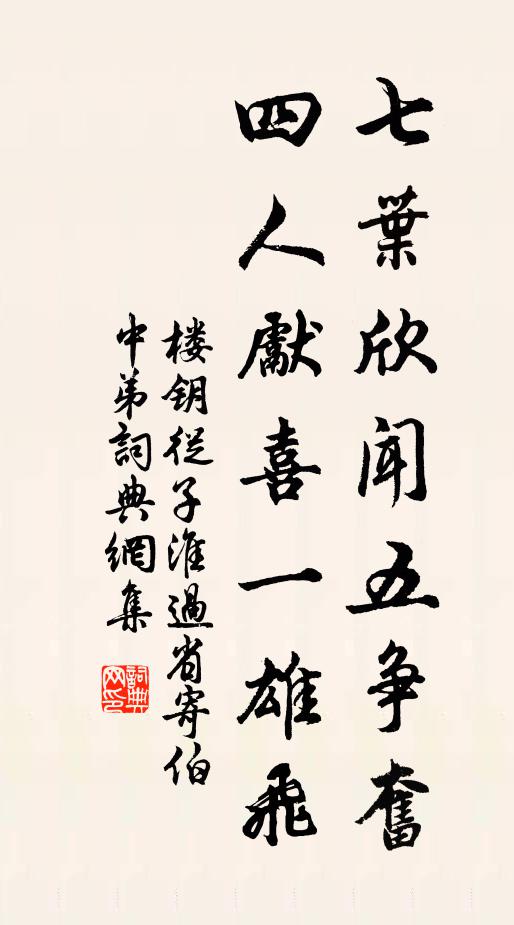 七葉欣闻五争奮
四人獻喜一雄飛
楼钥從子淮過省寄伯
中弟詞典網集
詞典网印